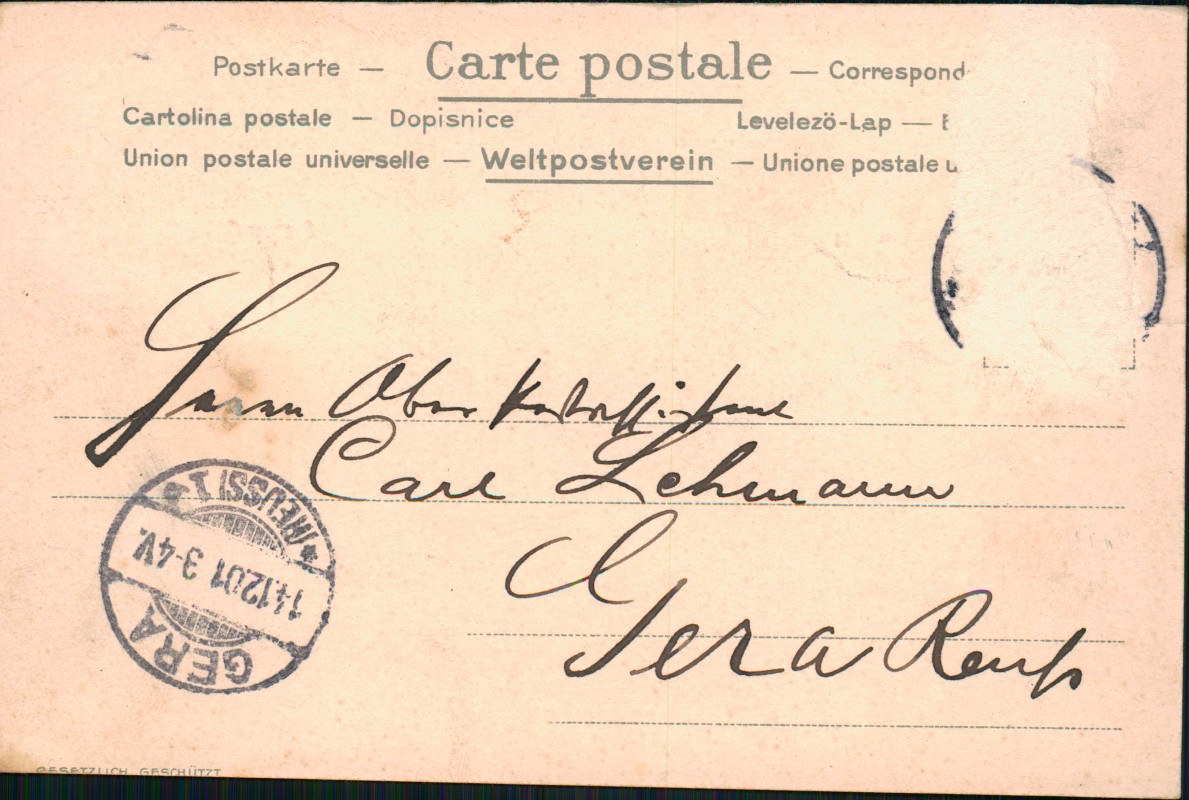 Postkarte — Carte postale — Correspond
Cartolina postale — Dopisnice Levelezö-Lap —
Union postale universelle — Weltpostverein — Unione postale u
Herrn Ober
Carl Lehmann
Gera Reuß
* (REUSS) 1
14.12.01 3-4V.
GERA
GESETZLICH GESCHÜTZT